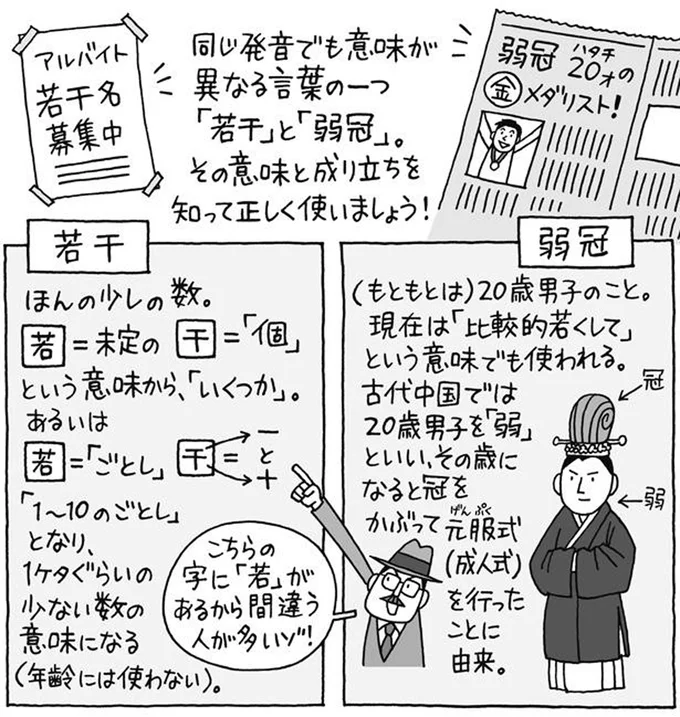 アルバイト
若干名
募集中
同じ発音でも意味が
異なる言葉の一つ
「若干」と「弱冠」。
その意味と成り立ちを
知って正しく使いましょう！
弱冠 20才の
ハタチ
金メダリスト！
若干
ほんの少しの数。
若=未定の 干=「個」
という意味から、「いくつか」。
あるいは
若=「ごとし」 干=一と十
「1〜10のごとし」
となり、
1ケタぐらいの
少ない数の
意味になる
(年齢には使わない)。
こちらの
字に「若」が
あるから間違う
人が多いゾ！
弱冠
(もともとは)20歳男子のこと。
現在は「比較的若くして」
という意味でも使われる。
古代中国では
20歳男子を「弱」
といい、その歳に
なると冠を
かぶって元服式
げんぷく
(成人式)
を行った
ことに
由来。
冠
弱